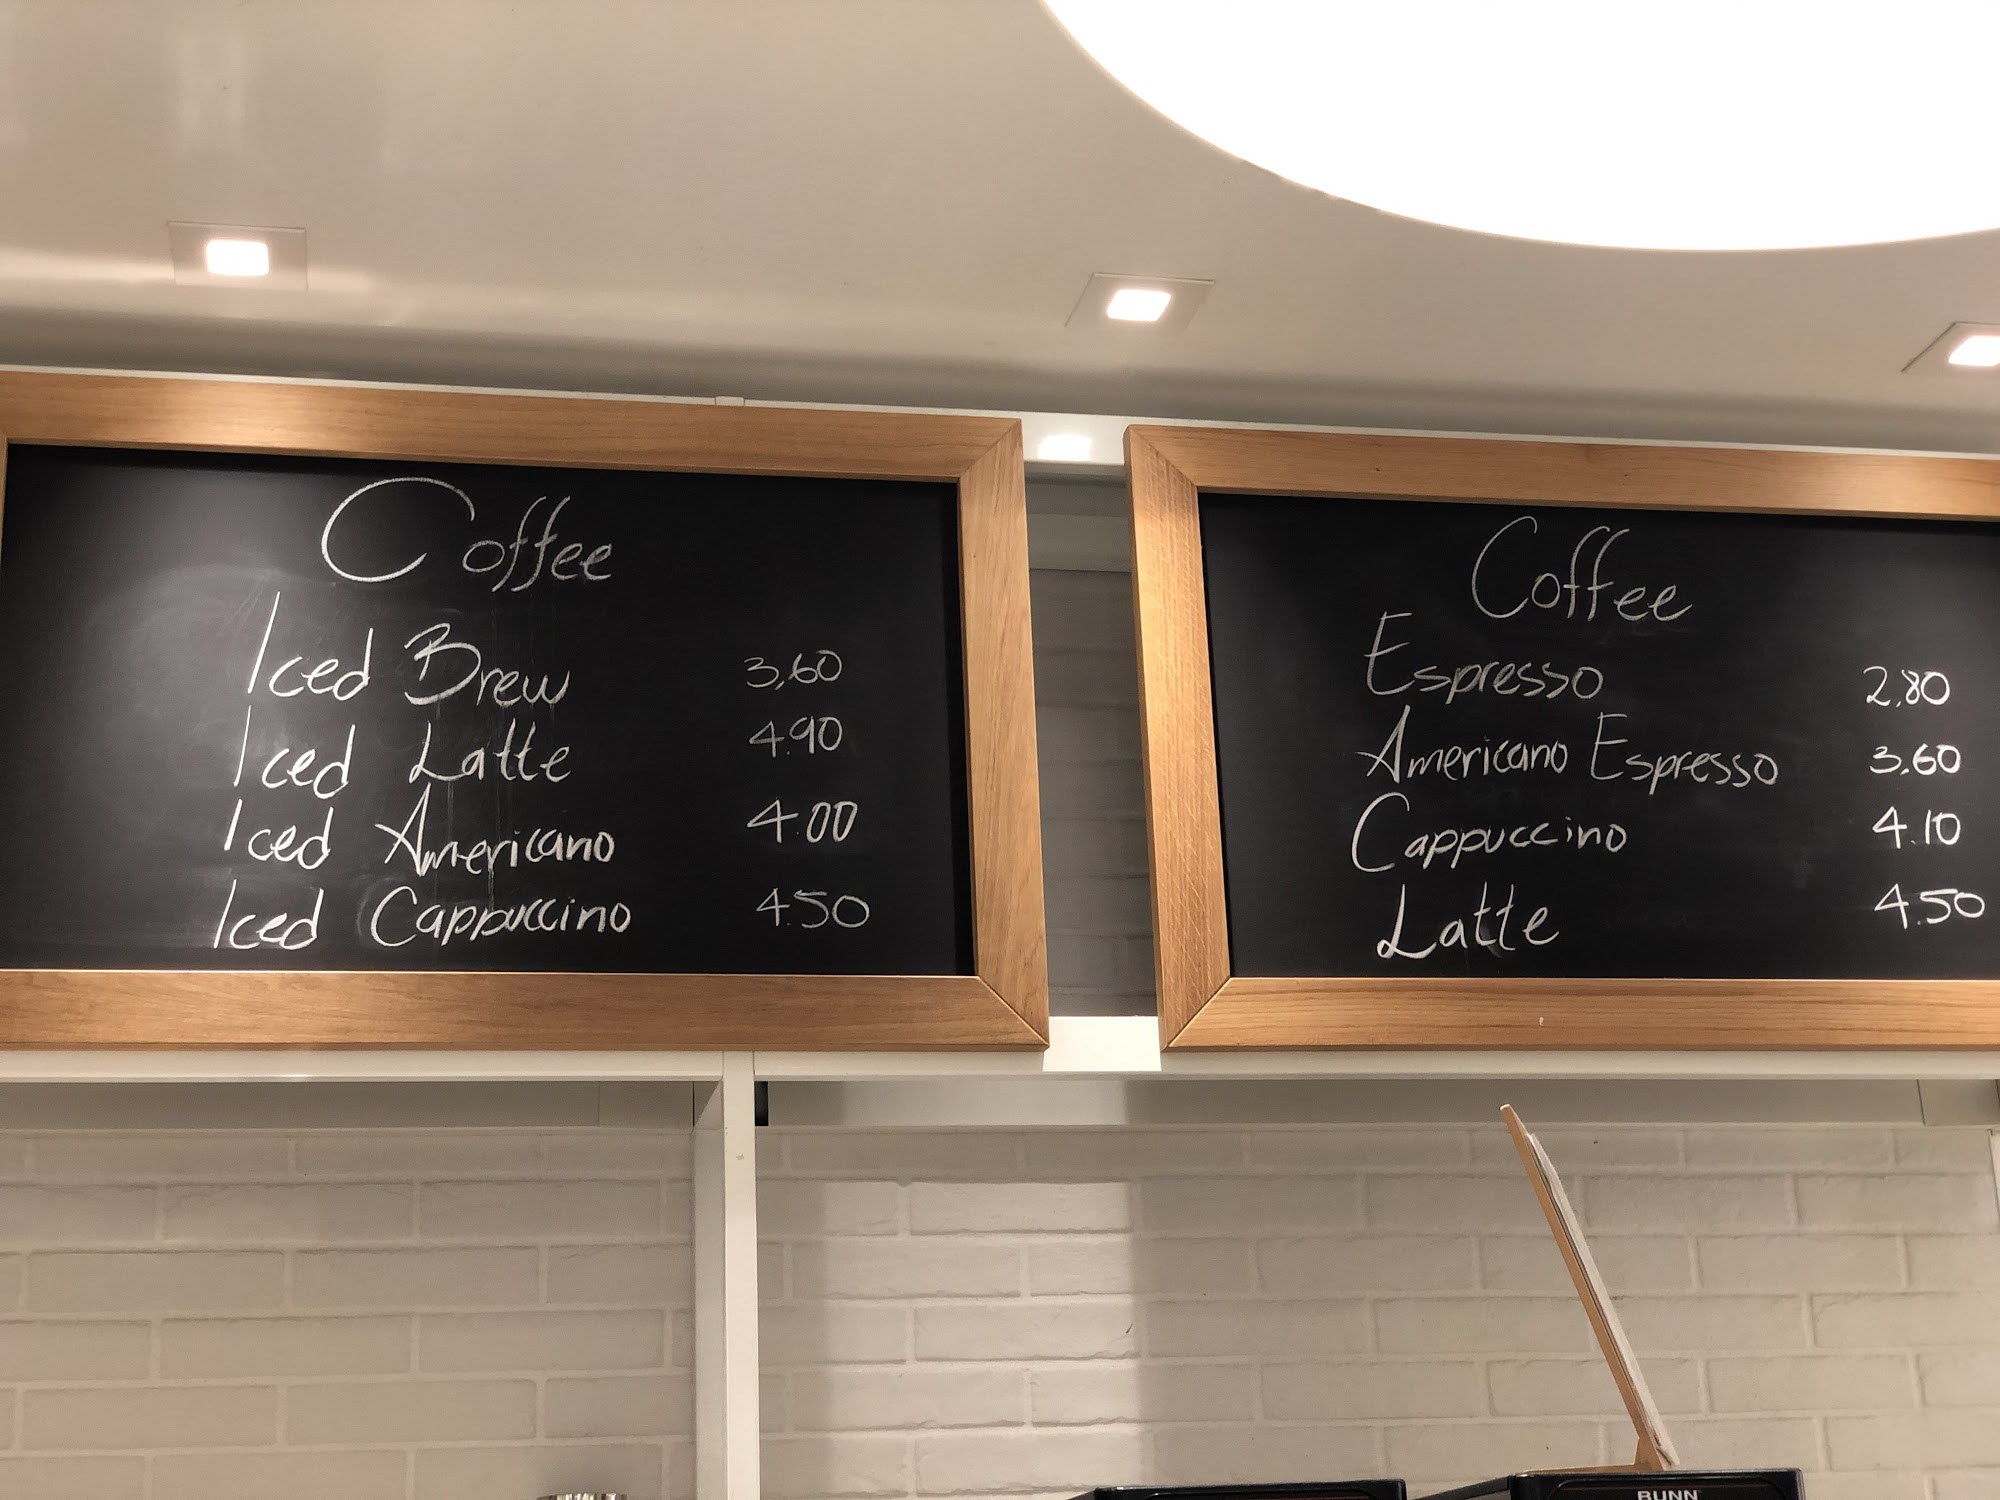 Coffee
Iced Brew 3.60
Iced Latte 4.90
Iced Americano 4.00
Iced Cappuccino 4.50
Coffee
Espresso 2.80
Americano Espresso 3.60
Cappuccino 4.10
Latte 4.50
BUNN